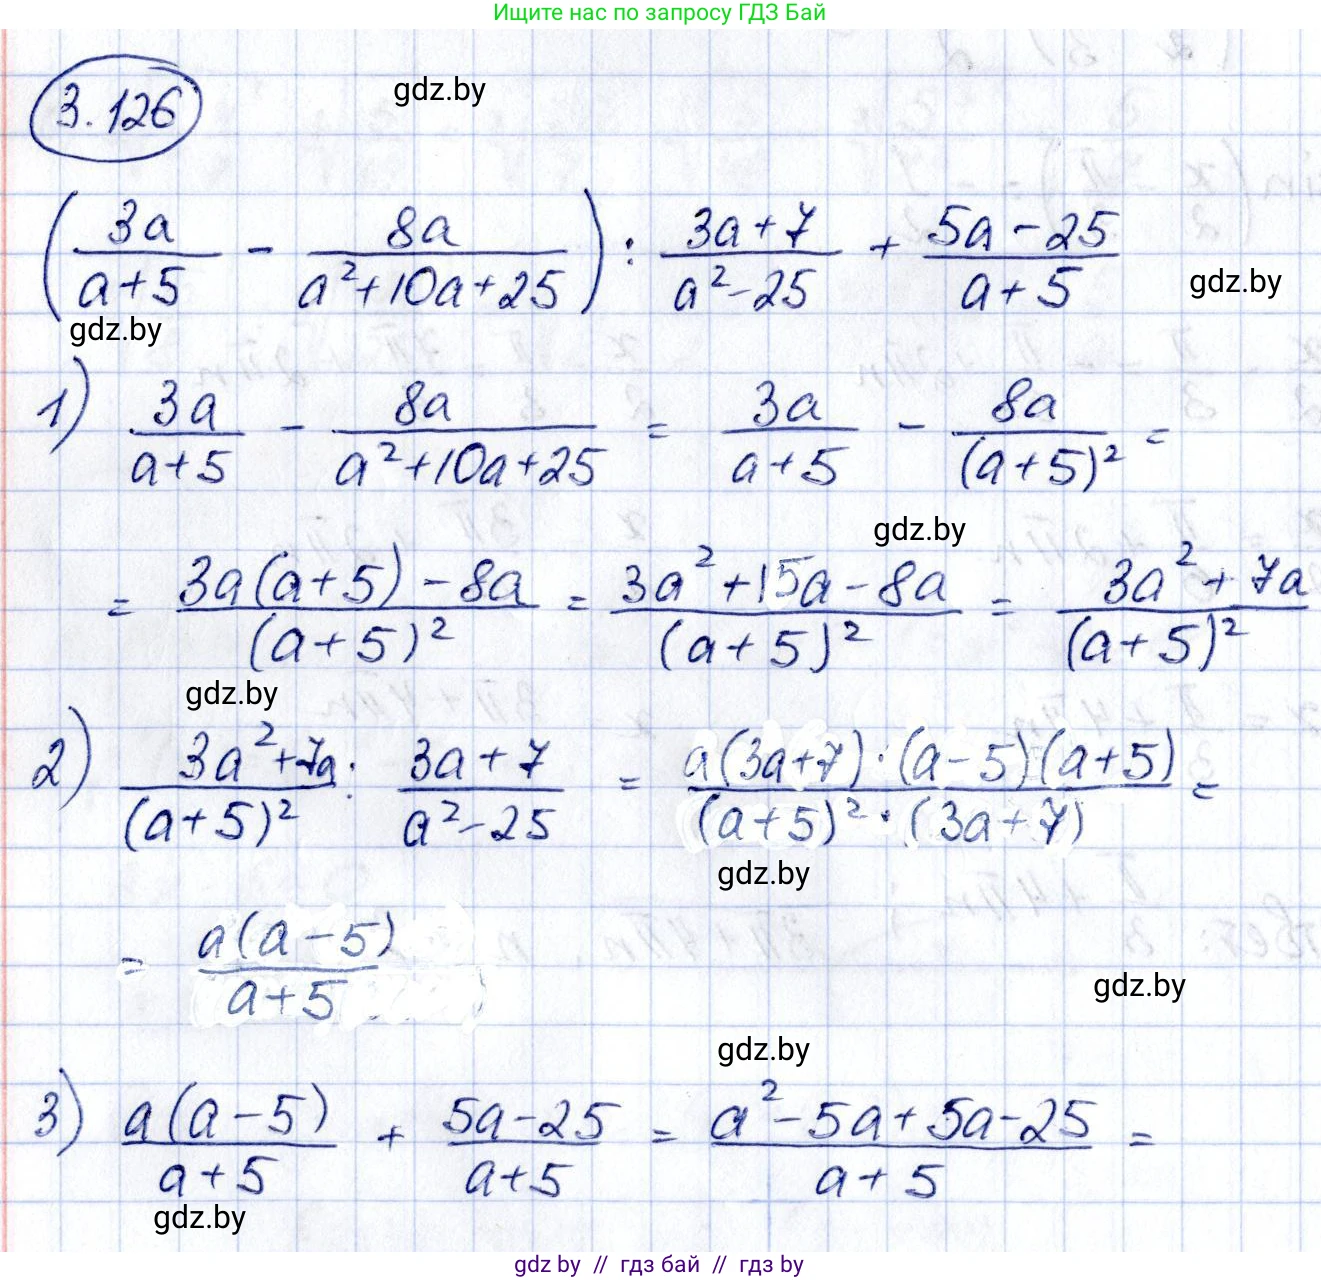 Ищите нас по запросу ГДЗ Бай
3.126
gdz.by
(3a/(a+5) - 8a/(a²+10a+25)) : (3a+7)/(a²-25) + (5a-25)/(a+5)
gdz.by
gdz.by
1) 3a/(a+5) - 8a/(a²+10a+25) = 3a/(a+5) - 8a/(a+5)² =
gdz.by
= (3a(a+5)-8a)/(a+5)² = (3a²+15a-8a)/(a+5)² = (3a²+7a)/(a+5)²
gdz.by
2) (3a²+7a)/(a+5)² : (3a+7)/(a²-25) = (a(3a+7)·(a-5)(a+5))/((a+5)²·(3a+7)) =
gdz.by
= a(a-5)/(a+5)
gdz.by
gdz.by
3) a(a-5)/(a+5) + (5a-25)/(a+5) = (a²-5a+5a-25)/(a+5) =
gdz.by
gdz by // гдз бай // гдз by